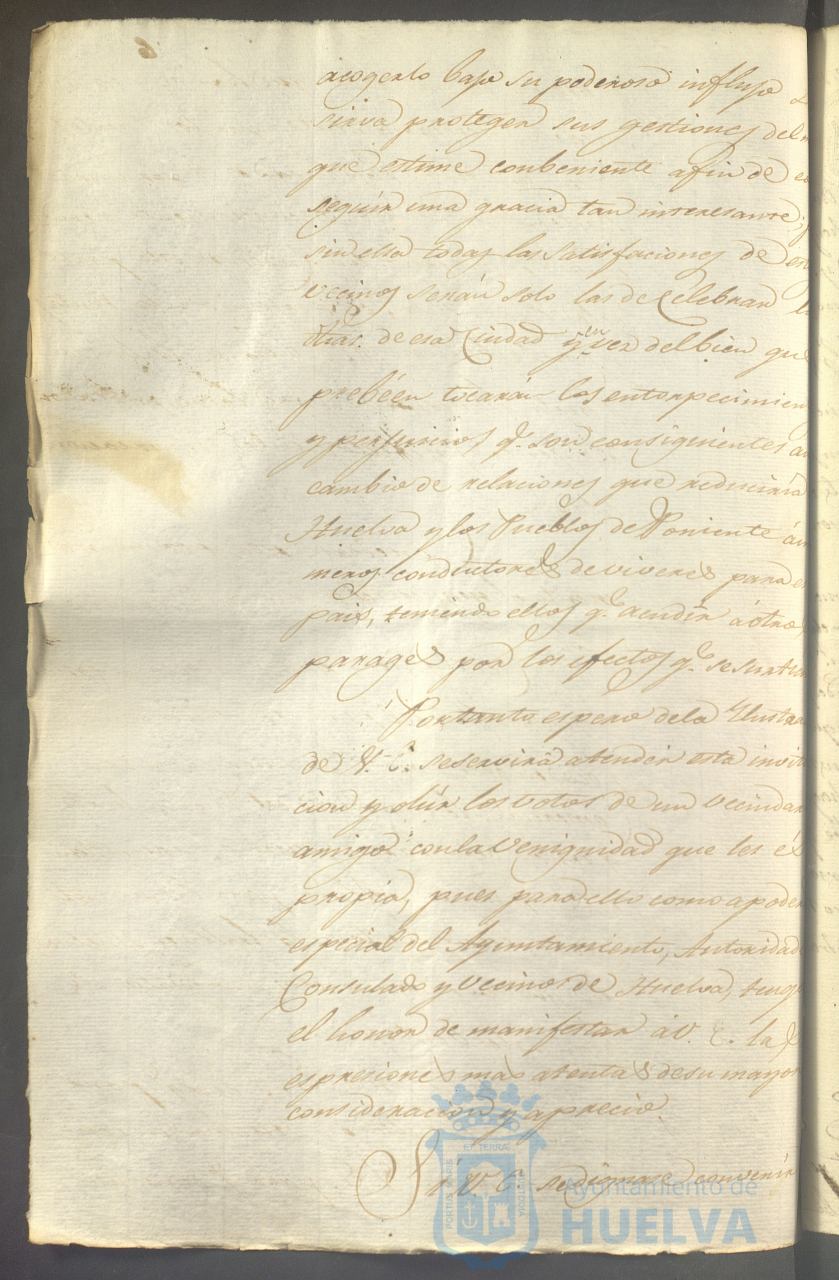 acogerlo bajo su poderoso influjo
sirva proteger sus gestiones del
que estime conbeniente afin de
seguir una gracia tan interesante;
sin ella todas las satisfaciones de
vecinos serán solo las de Celebrar
dhas. de esa Ciudad y en vez del bien que
prebéen tocarán los entorpecimien
y perjuicios q.e son consiguientes
cambio de relaciones que reduciria
Huelva y los Pueblos de Poniente á
meros conductores de viveres para
pais, teniendo ellos q.e acudir á otros
parages por los efectos q.e se surt
Portanto espero dela Ilustra
de V. E. seservirá atender esta invit
cion y oir los votos de un vecindar
amigo con la Venignidad que les és
propia, pues para ello como apoder
especial del Ayuntamiento, Autoridad
Consulado y Vecinos de Huelva, teng
el honor de manifestar á V. E. las
espresiones mas atentas desu mayor
consideracion y aprecio.
Si V. E. sedignase convenir
PORTUS MARIS ET TERRAE CUSTODIA
Ayuntamiento de
HUELVA